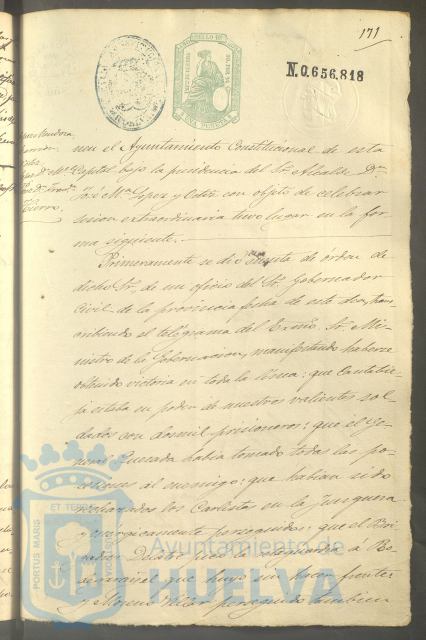 171
SELLO 10º
UNA PESETA
N.0.656.818
nen el Ayuntamiento Constitucional de esta
Capital bajo la presidencia del Sr. Alcalde Dn.
José Mª Lopez y Ortiz con objeto de celebrar
sesion extraordinaria tuvo lugar en la for-
ma siguiente.
Primeramente se dió cuenta de órden de
dicho Sr. de un oficio del Sr. Gobernador
Civil de la provincia fecha de este dia, trans-
cribiendo el telégrama del Exmo. Sr. Mi-
nistro de la Gobernacion, manifestando haberse
obtenido victoria en toda la línea: que
estaba en poder de nuestros valientes sol-
dados con dosmil prisioneros: que el Ge-
neral Quesada habia tomado todas las po-
siciones al enemigo: que habian sido
rechazados los Carlistas en la Junquera
y enérgicamente perseguidos: que el Bri-
gadier
que huyó sin hacer frente
y Moreno Villar perseguido tambien
Ayuntamiento de
HUELVA
PORTUS MARIS
ET TERRAE